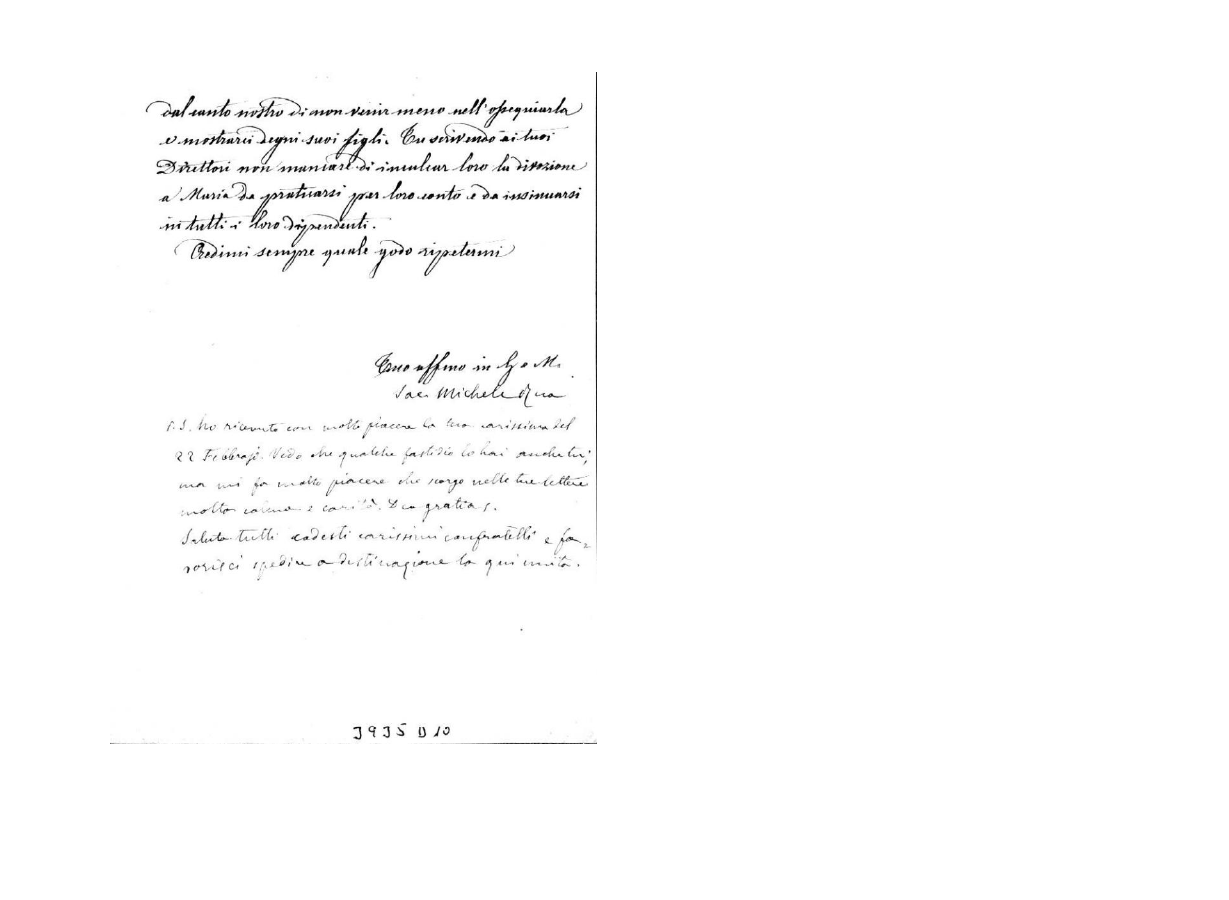 dal canto nostro di non venir meno nell'ossequiarla
e mostrarci degni suoi figli. Tu scrivendo ai tuoi
Direttori non mancare di inculcar loro la divozione
a Maria da praticarsi per loro conto e da insinuarsi
in tutti i loro dipendenti.
Credimi sempre quale godo ripetermi
Tuo affmo in G e M.
Sac. Michele Rua
P.S. Ho ricevuto con molto piacere la tua carissima del
22 Febbrajo. Vedo che qualche fastidio lo hai anche tu;
ma mi fa molto piacere che scorgo nelle tue lettere
molta calma e carità. Deo gratias.
Saluta tutti codesti carissimi confratelli e fa=
vorisci spedire a destinazione la qui unita.
3935 D 10